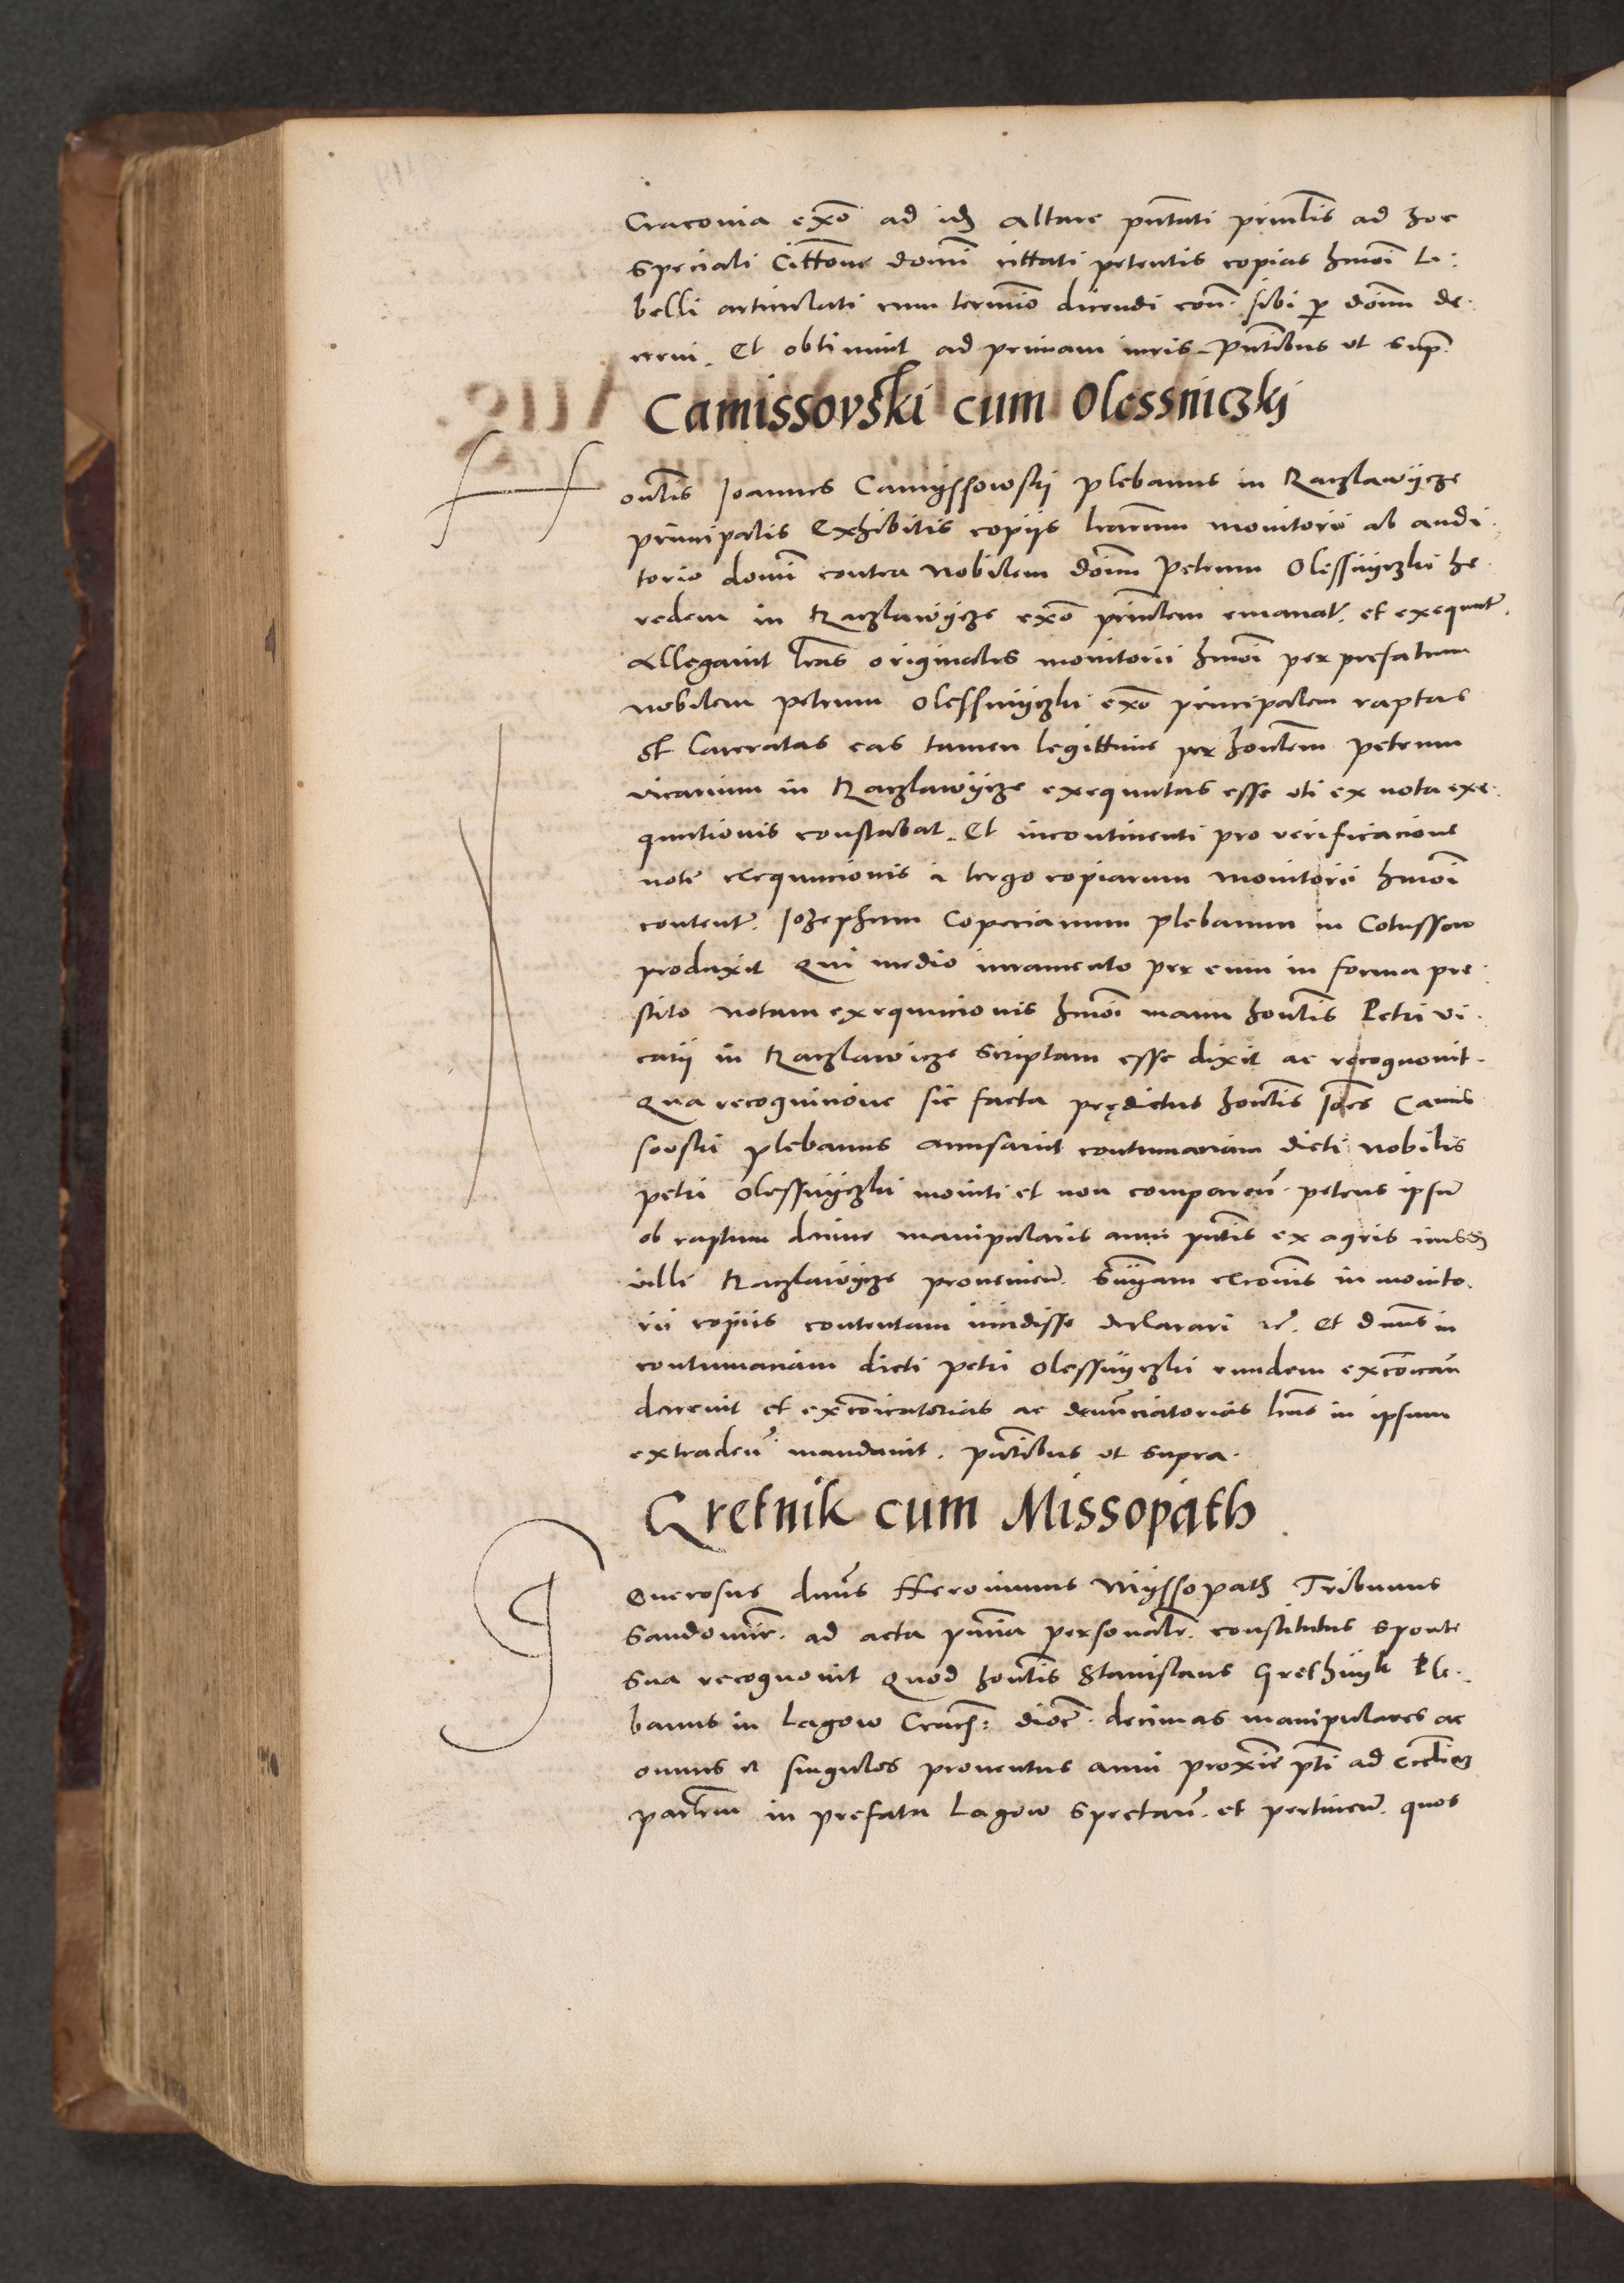 Craconia exo ad id Altare pntati princlis ad hoc
speciali Cittone domi cittati petentis copias hmoi Li:
belli articulati cum termio dicendi con. sibi p doim de.
cerni. Et obtinuit ad primam iuris pntibus ut sup.
Camissovski cum Olessniczkj
H
onlis Joannes Camyssowskj plebanus in Raczlawycze
principalis Exhibitis copiis lrarum monitorii ab audi.
torio domi contra Nobilem doim Petrum Olessnyczki he
redem in Raczlawycze exo princlem emanat. et exequut.
Allegavit lras originales monitorii hmoi per prefatum
nobilem petrum Olessnyczki exo principalem raptas
et laceratas eas tamen legittime per honlem petrum
vicarium in Raczlawycze exequutas esse uti ex nota exe.
quutionis constabat. Et incontinenti pro verificacione
note exequucionis a tergo copiarum monitorii hmoi
content. Jozephum Coprianum plebanum in Cotussow
produxit Qui medio iuramento per eum in forma pre
stito notam exequucionis hmoi manu honlis Petri vi.
carii in Raczlawicze scriptam esse dixit ac recognovit.
Qua recognicione sic facta prędictus honlis Joes Camis
sovski plebanus accusavit contumaciam dicti nobilis
petri Olessnyczki moniti et non comparen. petens ipsum
ob raptum decime manipularis anni pntis ex agris eiusd
ville Raczlawycze provenien. snyam exconis in monito.
rii copiis contentam incidisse declarari etc. Et dnus in
contumaciam dicti petri Olessnyczki eundem excoican
decrevit et excoicatorias ac denunciatorias lras in ipsum
extraden mandavit. pntibus ut supra.
Gretnik cum Missopath
G
Enerosus dnus Hieronimus Myssopath Tribunus
Sandomir. ad acta pnia personalr. constitutus sponte
sua recognovit Quod honlis Stanislaus Grethnyk Ple.
banus in Lagow Cracs: dioc. decimas manipulares ac
omnes et singulos proventus anni proxie pti ad eccliam
parlem in prefata Lagow spectan. et pertinen. quos